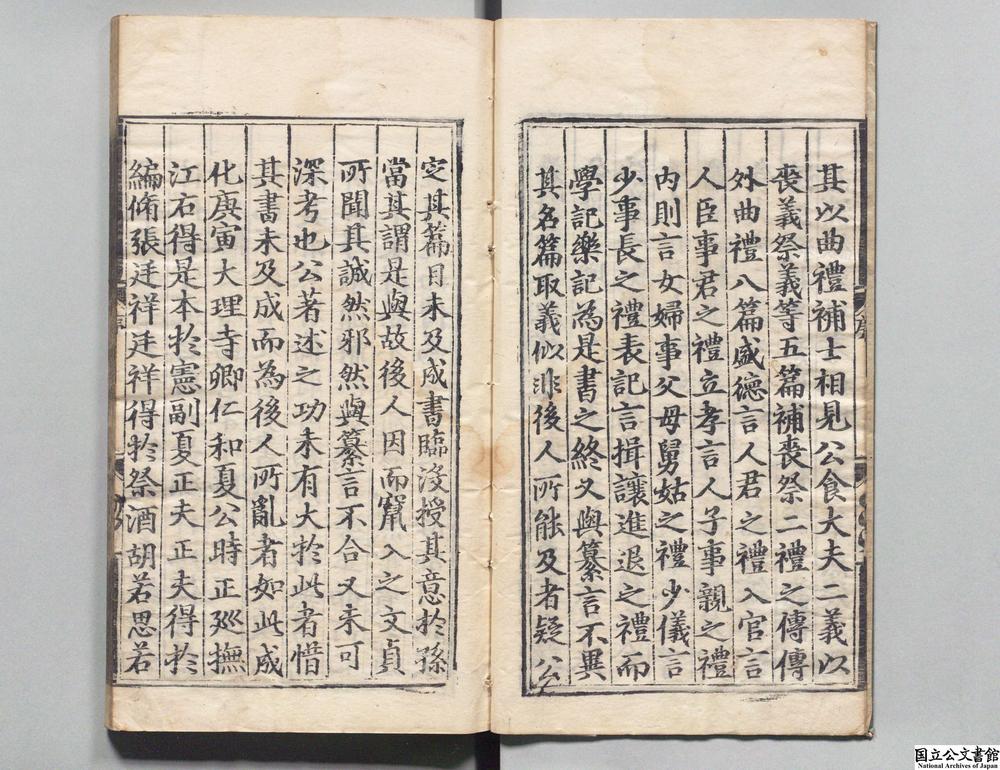 其以曲禮補士相見公食大夫二義以
喪義祭義等五篇補喪祭二禮之傳傳
外曲禮八篇盛德言人君之禮入官言
人臣事君之禮立孝言人子事親之禮
内則言女婦事父母舅姑之禮少儀言
少事長之禮表記言揖讓進退之禮而
學記樂記為是書之終又與纂言不異
其名篇取義似非後人所能及者疑公
定其篇目未及成書臨沒授其意於孫
當其謂是與故後人因而竄入之文貞
所聞其誠然邪然與纂言不合又未可
深考也公著述之功未有大於此者惜
其書未及成而為後人所亂者如此成
化庚寅大理寺卿仁和夏公時正廵撫
江右得是本於憲副夏正夫正夫得於
編脩張廷祥廷祥得於祭酒胡若思若
序
国立公文書館
National Archives of Japan